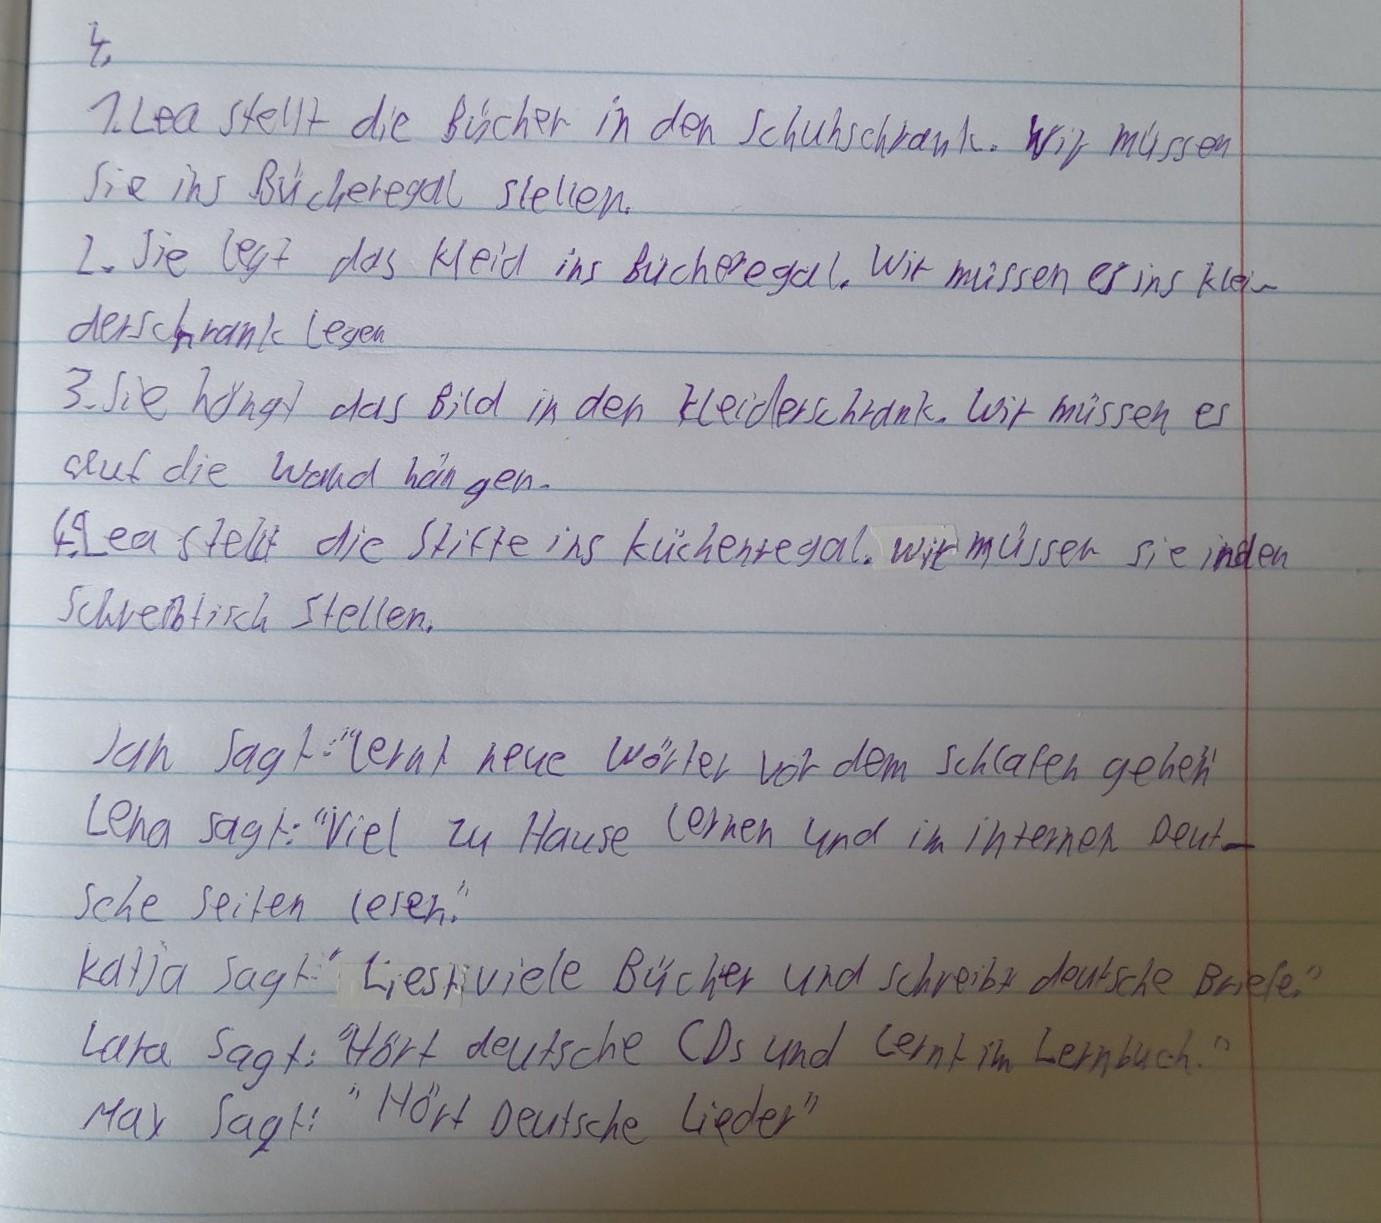 4.
1. Lea stellt die Bücher in den Schuhschrank. Wir müssen
Sie ins Bücheregal stellen.
2. Sie legt das Kleid ins Bücheregal. Wir müssen es ins Klei-
derschrank legen
3. Sie hängt das Bild in den Kleiderschrank. Wir müssen es
auf die Wand hängen.
4. Lea stellt die Stifte ins Küchenregal. Wir müssen sie in den
Schreibtisch stellen.
Jan sagt: "Lernt neue Wörter vor dem Schlafen gehen"
Lena sagt: "Viel zu Hause lernen und im internen Deut-
sche Seiten lesen."
Katja sagt: "Liest viele Bücher und schreibt deutsche Briefe."
Lara sagt: "Hört deutsche CDs und lernt im Lernbuch."
Max sagt: "Hört Deutsche Lieder"